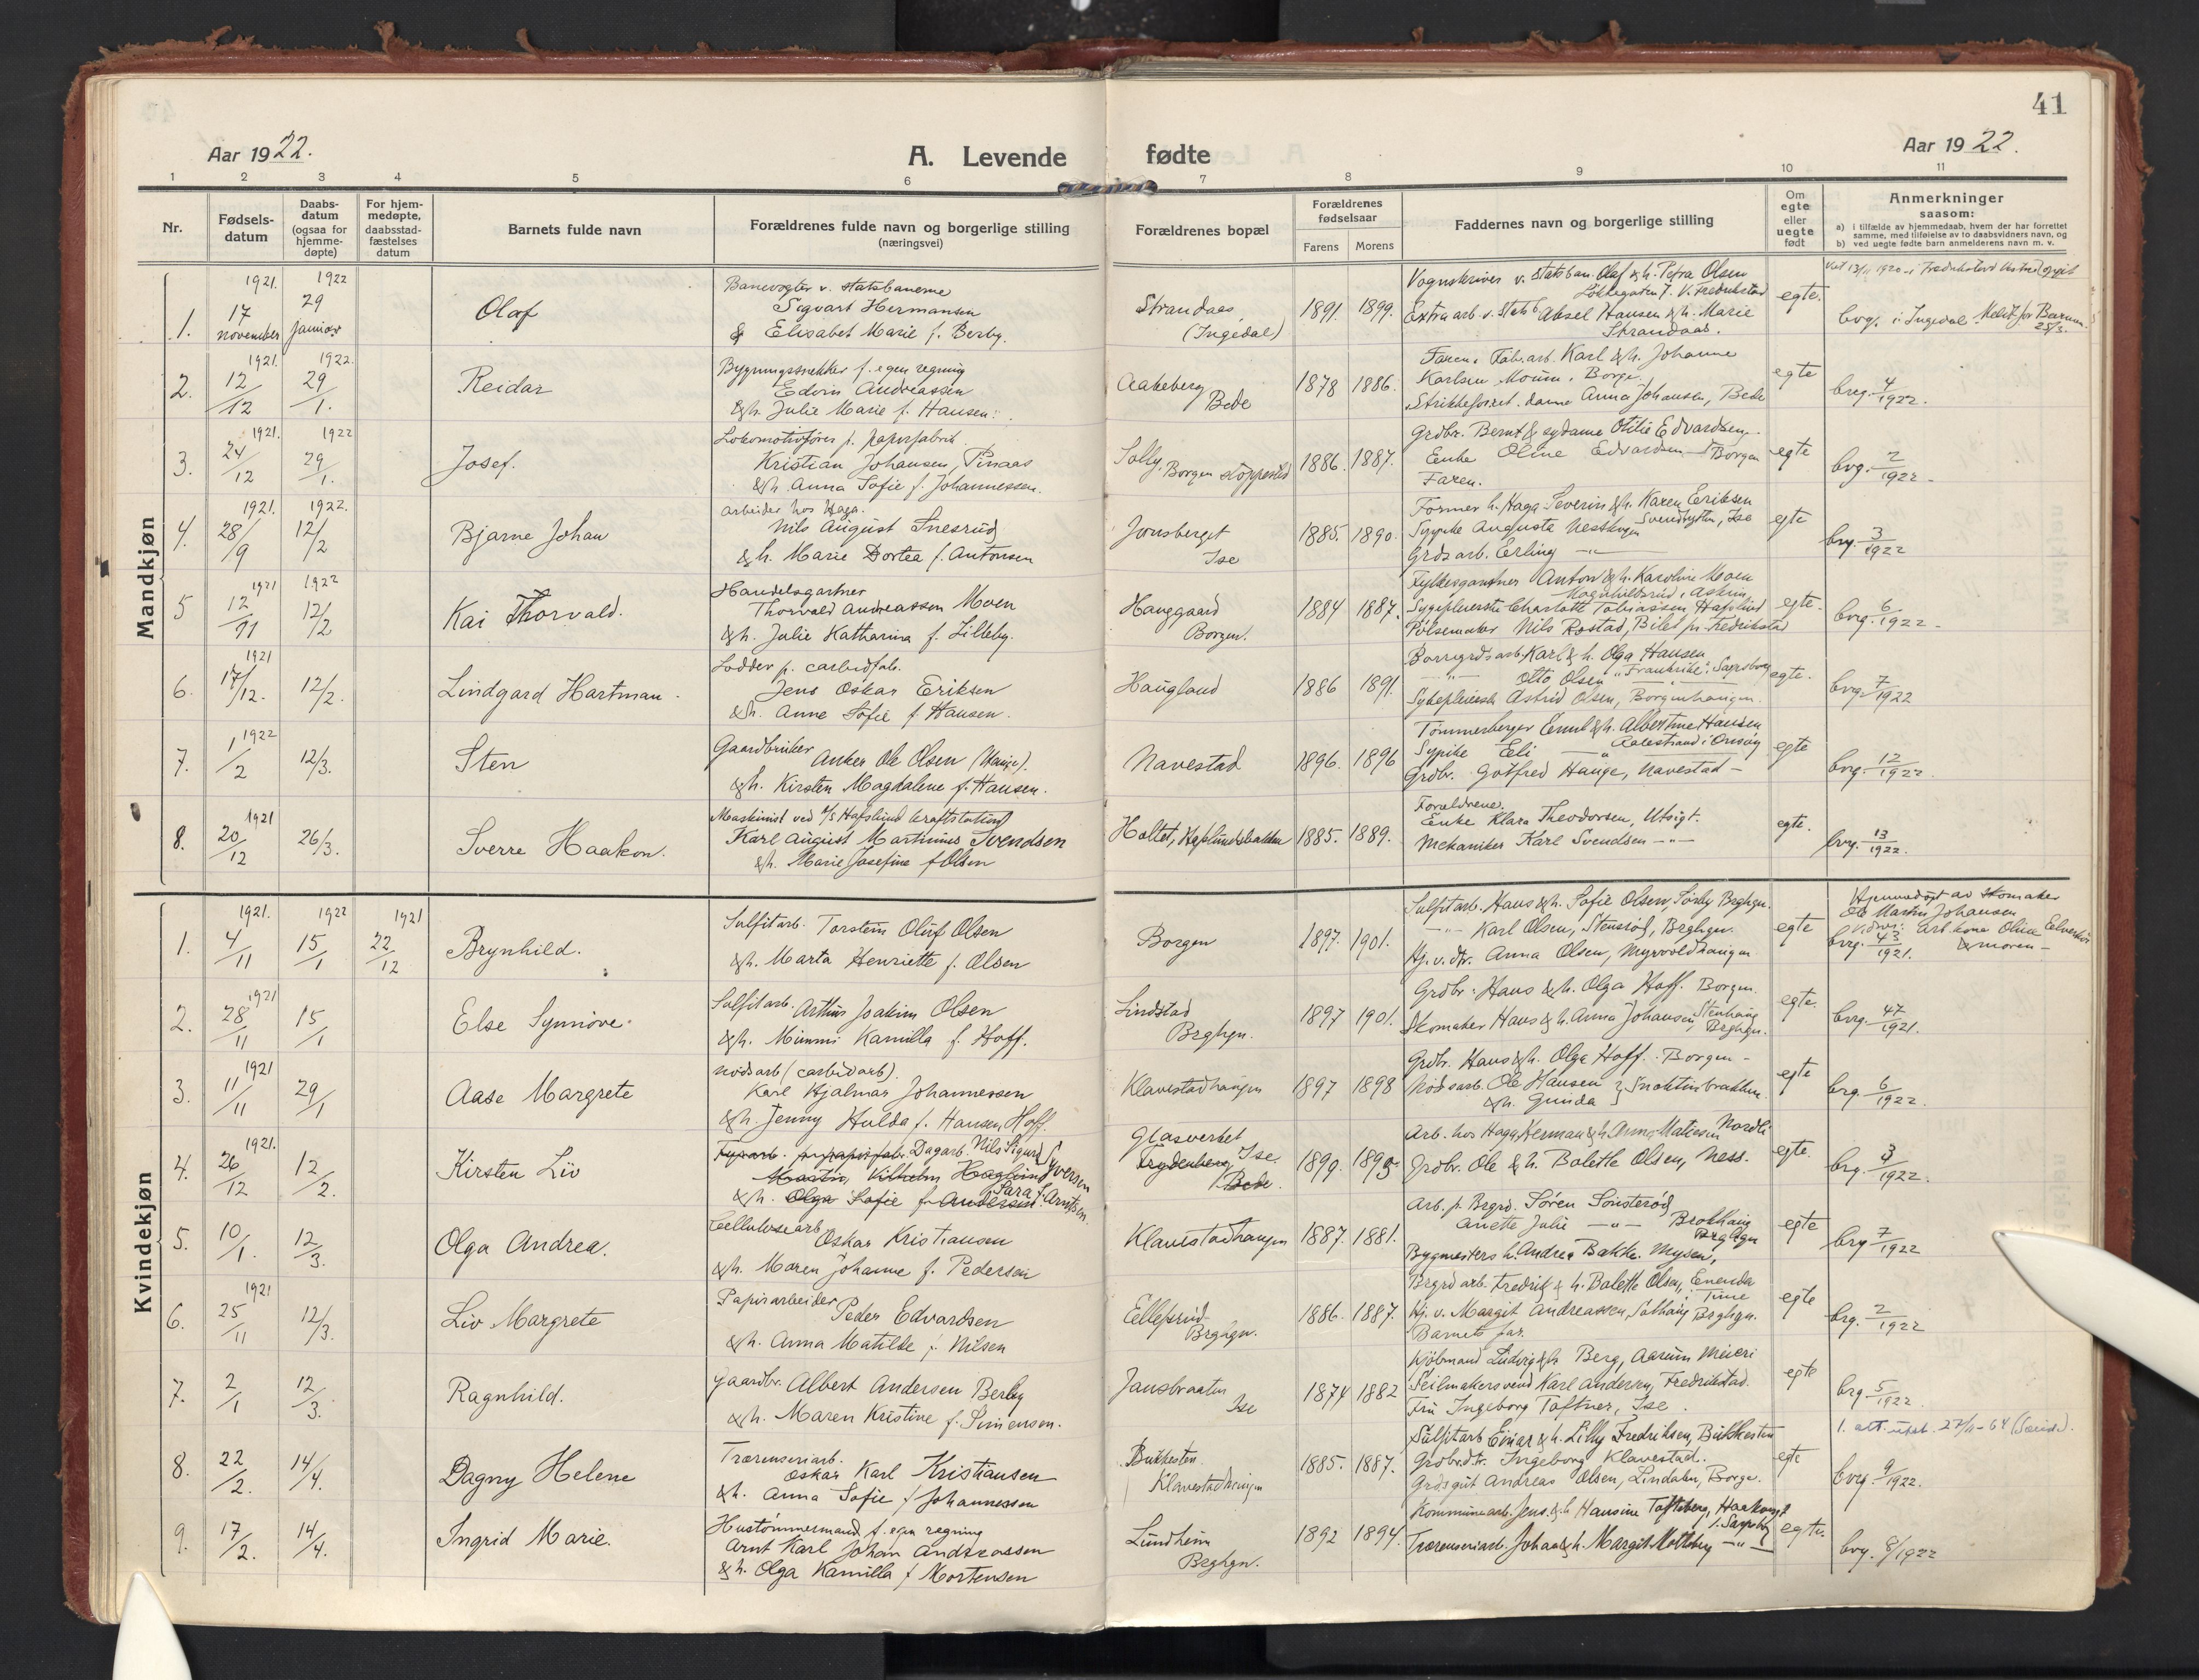 41
Aar 1922.
A. Levende fødte
Aar 1922.
1 2 3 4 5 6 7 8 9 10 11
Nr.
Fødsels-
datum
Daabs-
datum
(ogsaa for
hjemme-
døpte)
For hjem-
medøpte,
daabsstad-
fæstelses
datum
Barnets fulde navn
Forældrenes fulde navn og borgerlige stilling
(næringsvei)
Forældrenes bopæl
Forældrenes
fødselsaar
Farens
Morens
Faddernes navn og borgerlige stilling
Om
egte
eller
uegte
født
Anmerkninger
saasom:
a) i tilfælde av hjemmedaab, hvem der har forrettet
samme, med tilføielse av to daabsvidners navn, og
b) ved uegte fødte barn anmelderens navn m. v.
Mandkjøn
1.
1921.
17
november
1922
29
januar
Olaf
Banevogter v. statsbanerne
Sigvart Hermansen
& Elisabet Marie f. Berby.
Strandaas
(Ingedal)
1891. 1899.
Vognskriver v. statsban. Olaf & h. Petra Olsen
Løkkegaten 7. V. Fredrikstad
Extraarb. v. Statsb. Aksel Hansen & h. Marie
Strandaas.
egte.
Viet 13/11 1920 i Fredrikstad
bvg. i Ingedal
25/3.
2.
1921.
12/12
1922.
29/1.
Reidar
Bygningssnekker f. egen regning
Edvin Andreassen
& h. Julie Marie f. Hansen.
Aakeberg
Bede
1878 1886.
Faren. Fab.arb. Karl & h. Johanne
Karlsen Moum, Borge.
Strikkeforret. dame Anna Johansen, Bede
egte
brg. 4/1922.
3.
1921.
24/12
1922
29/1.
Josef.
Lokomotivfører p. papirfabrik.
Kristian Johansen, Tinaas
& h. Anna Sofie f. Johannessen.
Solly, Borgen stoppested
1886. 1887.
Grdbr. Bernt & sydame Otilie Edvardsen,
Enke Oline Edvardsen Borgen
Faren.
egte
bvg. 2/1922.
4.
1921.
28/9
1922.
12/2
Bjarne Johan
arbeider hos Haga.
Nils August Snesrud
& h. Marie Dortea f. Antonsen
Jonsberget
Ise
1885. 1890.
Former h. Haga Severin & h. Karen Eriksen
Sypike Augusta Nesskogen Svendbytten, Ise
Grdsarb. Erling —"—
egte
brg. 3/1922
5
1921
12/11
1922
12/2
Kai Thorvald.
Handelsgartner
Thorvald Andreassen Moen
& h. Julie Katharina f. Lilleby.
Hauggaard
Borgen.
1884 1887.
Fylkesgartner Anton & h. Karoline Moen
Magnhildsrud, Askim
Sygepleierske Charlotte Tobiassen, Hafslund
Pølsemaker Nils Rostad, Bilet pr. Fredrikstad
egte.
brg. 6/1922.
6.
1921
17/12.
12/2.
Lindgard Hartman.
Lodder p. carbidfab.
Jens Oskar Eriksen
& h. Anne Sofie f. Hansen.
Haugland
1886 1891.
Borregrdsarb. Karl & h. Olga Hansen
—"— Otto Olsen "Frankrike" Sarpsborg
Sykepleierske Astrid Olsen, Borgenhaugen.
egte.
brg. 7/1922
7.
1922
1/2
12/3.
Sten
Gaardbruker Anker Ole Olsen (Hauge).
& h. Kirsten Magdalene f. Hansen.
Navestad
1896. 1896
Tømmerberger Emil & h. Albertine Hansen
Sypike Eli —"— Aalestrand i Onsøy
Grdbr. Gotfred Hauge, Navestad —
egte
brg. 12/1922.
8.
1921
20/12
26/3.
Sverre Haakon.
Maskinist ved A/S Hafslund kraftstation
Karl August Martinius Svendsen
& h. Marie Josefine f. Olsen
Holtet, Hafslundsbakken
1885. 1889.
Forældrene.
Enke Klara Theodorsen, Utsigt.
Mekaniker Karl Svendsen —"—
egte.
brg. 13/1922.
Kvindekjøn
1.
1921.
4/11
1922
15/1
1921
22/12
Brynhild.
Sulfitarb. Torstein Oluf Olsen
& h. Marta Henriette f. Olsen
Borgen
1897. 1901.
Sulfitarb. Hans & h. Sofie Olsen, Sørby Brghgn.
—"— Karl Olsen, Stensrød, Brghgn.
Hj. v. dtr. Anna Olsen, Myrvoldhaugen
egte
Hjemmedøpt av skomaker
Ole Martin Johansen
Vidner: Arb. kone Olina
& moren —
brg. 43/1921.
2.
1921
28/11
15/1
Else Synnöve.
Sulfitarb. Arthur Joakim Olsen
& h. Mimmi Kamilla f. Hoff.
Lindstad
Brghgn.
1897 1901.
Grdbr. Hans & h. Olga Hoff. Borgen.
Skomaker Hans & h. Anna Johansen, Stenhaug
Brghgn.
egte.
brg. 47/1921.
3.
1921
11/11
29/1
Aase Margrete
nødsarb (carbidarb).
Karl Hjalmar Johannessen
& h. Jenny Hulda f. Hansen Hoff.
Klavestadhaugen
1897 1898
Grdbr. Hans & h. Olga Hoff. Borgen —
Nødsarb. Ole Hansen
& h. Gunda
egte
brg. 6/1922.
4.
1921.
26/12
12/2.
Kirsten Liv
Fyrarb. p. papirfabr. Dagarb. Nils Sigurd Syversen
Martin Vilhelm Haglund
& h. Olga Sofie f. Andersen. Sara f. Arntsen.
Glasverket
Ise.
Frydenberg
Bede.
1899. 1899.
Arb. hos Haga, Herman & h. Anna Matiesen Nordli
Grdbr. Ole & h. Bolette Olsen, Ness.
egte.
brg. 3/1922.
5.
10/1.
12/3.
Olga Andrea.
Cellulosearb. Oskar Kristiansen
& h. Maren Johanne f. Pedersen
Klavestadhaugen
1887. 1881.
Arb. p. Brgrd. Søren Sønsterød
Anette Julie —"— Brokhaug
Brghgn
Bygmesters h. Andrea Bakke, Mysen,
egte
brg 7/1922
6.
1921
25/11
12/3.
Liv Margrete
Papirarbeider Peder Edvardsen
& h. Anna Matilde f. Nilsen
Ellefsrud
Brghgn.
1886. 1887.
Brgrd arb. Fredrik & h. Bolette Olsen, Enenda
i Tune
Hj. v. Margit Andreassen, Solhaug Brghgn.
Barnets far.
egte
brg. 2/1922
7.
2/1
12/3.
Ragnhild.
Gaardbr. Albert Andersen Berby
& h. Maren Kristine f. Simensen.
Jansbraaten
Ise
1874 1882
Kjøbmand Ludvig & h. Berg, Aarum Meieri
Seilmakersvend Karl Andersen, Fredrikstad.
Fru Ingeborg Toftner, Ise.
egte
brg. 5/1922.
1. att. utst. 27/11-64
8.
22/2.
14/4.
Dagny Helene
Trærenseriarb.
Oskar Karl Kristiansen
& h. Anna Sofie f. Johannessen
Bukkesten
Klavestadhaugen
1885. 1887.
Sulfitarb Einar & h. Lilly Fredriksen, Bukkesten
Grdbr.dtr. Ingeborg Klavestad.
Grdsgut Andreas Olsen, Lindalen, Borge.
egte
brg. 9/1922.
9.
17/2.
14/4.
Ingrid Marie.
Hustømmermand f. egen regning
Arnt Karl Johan Andreassen
& h. Olga Kamilla f. Mortensen
Lundheim
Brghgn.
1892 1894.
Kommunearb. Jens & h. Hansine Tofteberg, Haakonsgt
1. Sarpsborg
Trærenseriarb. Johan & h. Margit Molteberg —"—
egte.
bvg. 8/1922